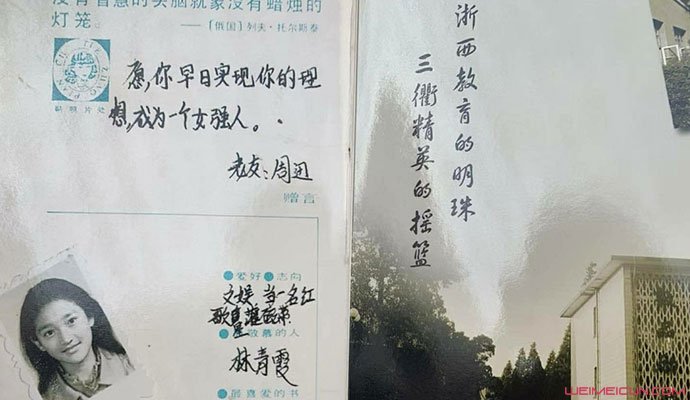 没有智慧的头脑就象没有蜡烛的
灯笼。 ——〔俄国〕列夫·托尔斯泰
贴照片处
愿,你早日实现你的理
想,成为一个女强人。
老友:周迅
赠言
爱好 志向
文娱 当一名红
歌星
敬慕的人
林青霞
最喜爱的书
浙西教育的明珠
三衢精英的摇篮